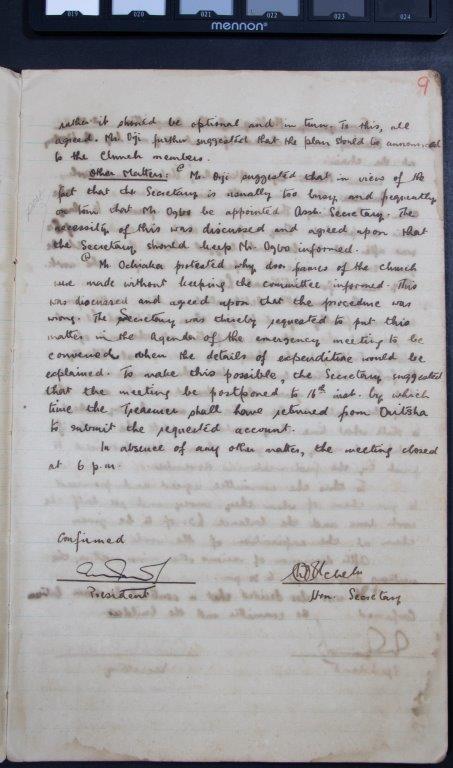 019 020 021 022 023 024
mennon
9
rather it should be optional and in turn. To this, all
agreed. Mr. Oji further suggested that the plan should to announced
to the Church members.
Other Matters: Mr. Oji suggested that in view of the
fact that the Secretary is usually too busy and frequently
on tour that Mr Ogbo be appointed Asst. Secretary. The
necessity of this was discussed and agreed upon that
the Secretary should keep Mr. Ogbo informed.
Mr. Ochiaka protested why door frames of the Church
were made without keeping the committee informed. This
was discussed and agreed upon that the procedure was
wrong. The Secretary was thereby requested to put this
matter in the Agenda of the emergency meeting to be
convened when the details of expenditure would be
explained. To make this possible, the Secretary suggested
that the meeting be postponed to 16th inst. by which
time the Treasurer shall have returned from Onitsha
to submit the requested account.
In absence of any other matter, the meeting closed
at 6 p.m.
Confirmed
President Hon. Secretary